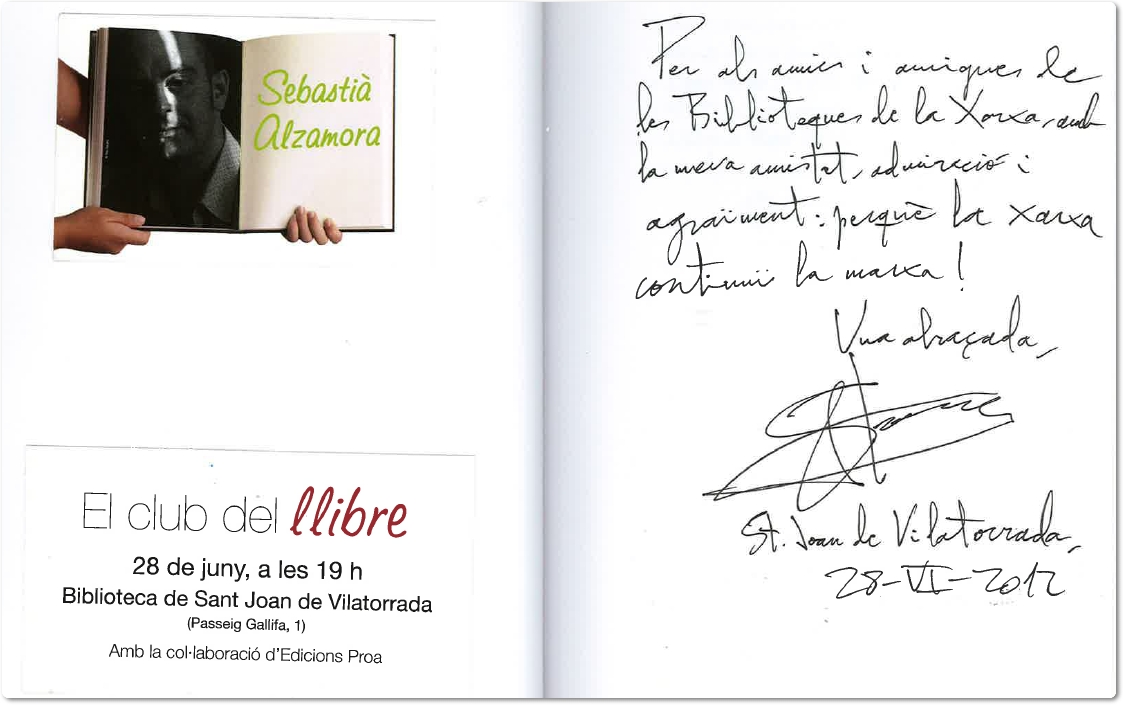 Sebastià
Alzamora
El club del llibre
28 de juny, a les 19 h
Biblioteca de Sant Joan de Vilatorrada
(Passeig Gallifa, 1)
Amb la col·laboració d'Edicions Proa
Per als amics i amigues de
les Biblioteques de la Xarxa, amb
la meva amistat, admiració i
agraïment: perquè la xarxa
continuï la marxa!
Una abraçada,
St. Joan de Vilatorrada,
28-VI-2012